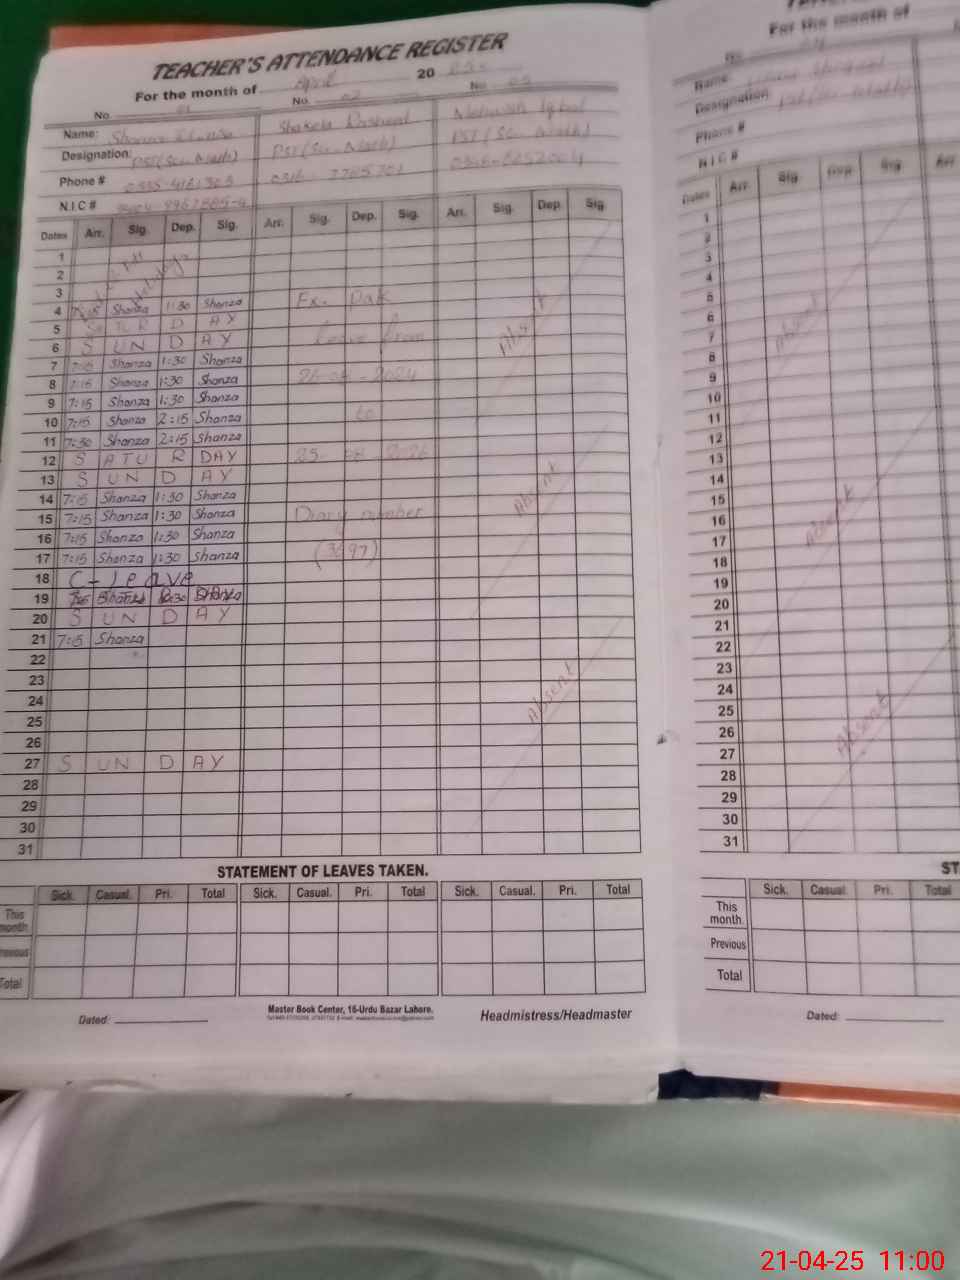 TEACHER'S ATTENDANCE REGISTER
For the month of April 20 25
No. 01 No. 02 No. 03
Name: Shakela Rasheed Mehwish Iqbal
Designation: PST (Sc. Math) PST (Sc. Math) PST (Sc. Math)
Phone #
N.I.C #
Dates Arr. Sig. Dep. Sig. Arr. Sig. Dep. Sig. Arr. Sig. Dep. Sig.
1
2
3
4 7:15 Shanza 1:30 Shanza Ex. Pak
5 SATUR DAY leave from
6 S UN D AY Absent
7 7:15 Shanza 1:30 Shanza
8 7:15 Shanza 1:30 Shanza 2024
9 7:15 Shanza 1:30 Shanza
10 7:15 Shanza 2:15 Shanza to
11 7:30 Shanza 2:15 Shanza
12 S ATU R DAY 2026
13 S UN D AY
14 7:15 Shanza 1:30 Shanza Absent
15 7:15 Shanza 1:30 Shanza Diary number
16 7:15 Shanza 1:30 Shanza
17 7:15 Shanza 1:30 Shanza (3697)
18 C-leave
19 Shanza
20 S UN D AY
21 7:15 Shanza
22
23
24 Absent
25
26
27 S UN D AY
28
29
30
31
STATEMENT OF LEAVES TAKEN.
Sick. Casual. Pri. Total Sick. Casual. Pri. Total Sick. Casual. Pri. Total
This month.
Previous
Total
Dated:
Master Book Center, 16-Urdu Bazar Lahore.
Headmistress/Headmaster
For the month of
No. 04
Name:
Designation
Phone #
N.I.C #
Dates Arr. Sig. Dep. Sig. Arr.
1
2
3
4
5
6
7 Absent
8
9
10
11
12
13
14
15
16 Absent
17
18
19
20
21
22
23
24
25
26 Absent
27
28
29
30
31
ST
Sick. Casual. Pri. Total
This month.
Previous
Total
Dated:
21-04-25 11:00